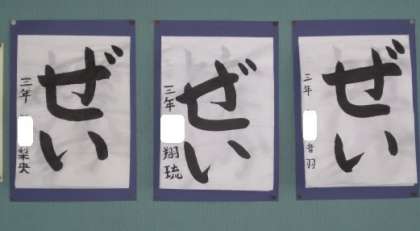 ぜい
三年
梨央
ぜい
三年
翔琉
ぜい
三年
音羽